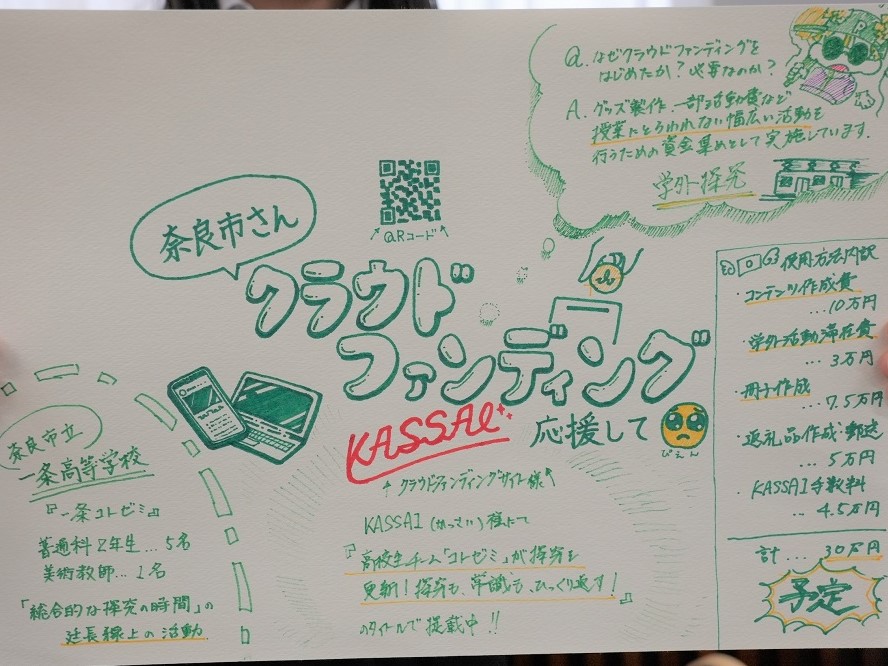 Q. なぜクラウドファンディングを
はじめたか？必要なのか？
A. グッズ製作、一部活動費など
授業にとらわれない幅広い活動を
行うための資金集めとして実施しています.
学外探究
奈良市さん
QRコード
クラウド
ファンディング
KASSAI
応援して
ぴえん
クラウドファンディングサイト様
KASSAI (かっさい) 様にて
『高校生チーム「コトゼミ」が探究を
更新！探究も、常識も、ひっくり返す！』
のタイトルで掲載中！！
奈良市立
一条高等学校
『一条コトゼミ』
普通科2年生…5名
美術教師…1名
「総合的な探究の時間」の
延長線上の活動
使用方法内訳
・コンテンツ作成費
…10万円
・学外活動滞在費
…3万円
・冊子作成
…7.5万円
・返礼品作成・郵送
…5万円
・KASSAI手数料
…4.5万円
計…30万円
予定